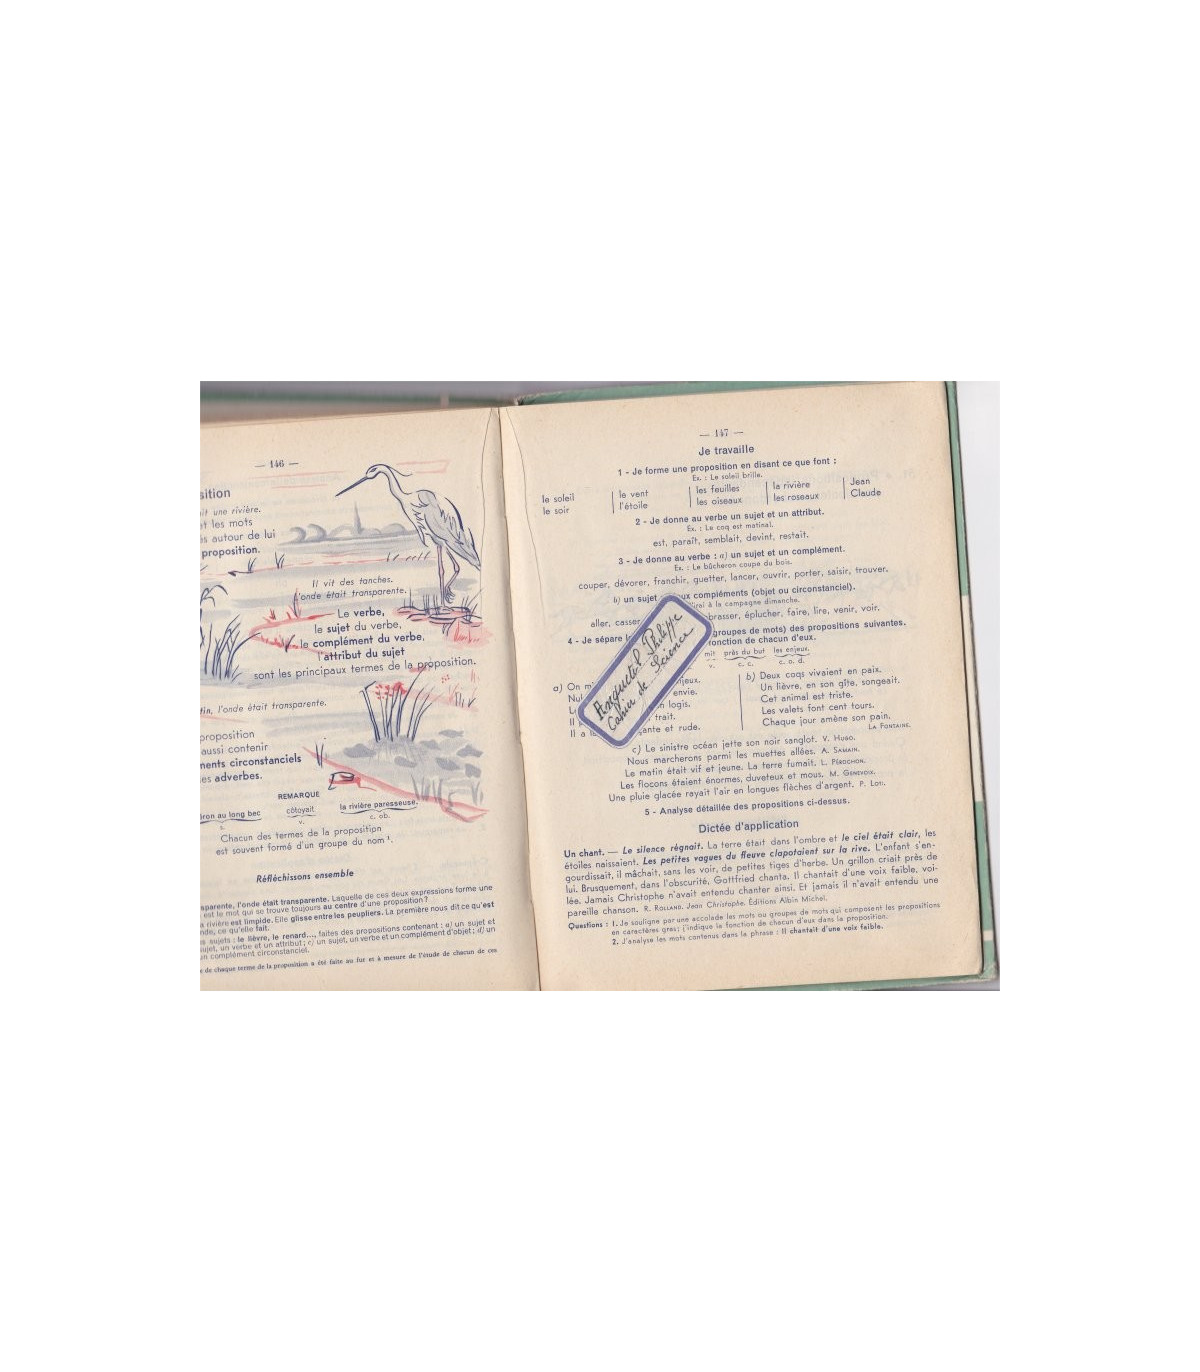 — 146 —
sition
ait une rivière.
et les mots
és autour de lui
proposition.
Il vit des tanches.
l'onde était transparente.
Le verbe,
le sujet du verbe,
le complément du verbe,
l'attribut du sujet
sont les principaux termes de la proposition.
tin, l'onde était transparente.
proposition
aussi contenir
ments circonstanciels
des adverbes.
REMARQUE
éron au long bec côtoyait la rivière paresseuse.
s. v. c. ob.
Chacun des termes de la proposition
est souvent formé d'un groupe du nom ¹.
Réfléchissons ensemble
sparente, l'onde était transparente. Laquelle de ces deux expressions forme une
est le mot qui se trouve toujours au centre d'une proposition ?
a rivière est limpide. Elle glisse entre les peupliers. La première nous dit ce qu'est
onde, ce qu'elle fait.
s sujets : le lièvre, le renard..., faites des propositions contenant : a) un sujet et
sujet, un verbe et un attribut ; c) un sujet, un verbe et un complément d'objet ; d) un
un complément circonstanciel.
e de chaque terme de la proposition a été faite au fur et à mesure de l'étude de chacun de ces
— 147 —
Je travaille
1 - Je forme une proposition en disant ce que font :
Ex. : Le soleil brille.
le soleil le vent les feuilles la rivière Jean
le soir l'étoile les oiseaux les roseaux Claude
2 - Je donne au verbe un sujet et un attribut.
Ex. : Le coq est matinal.
est, paraît, semblait, devint, restait.
3 - Je donne au verbe : a) un sujet et un complément.
Ex. : Le bûcheron coupe du bois.
couper, dévorer, franchir, guetter, lancer, ouvrir, porter, saisir, trouver.
b) un sujet ux compléments (objet ou circonstanciel).
irai à la campagne dimanche.
aller, casser brasser, éplucher, faire, lire, venir, voir.
4 - Je sépare groupes de mots) des propositions suivantes.
fonction de chacun d'eux.
mit près du but les enjeux.
v. c. c. c. o. d.
a) On mi njeux.
Nul envie.
n logis.
Il trait.
Il a ante et rude.
b) Deux coqs vivaient en paix.
Un lièvre, en son gîte, songeait.
Cet animal est triste.
Les valets font cent tours.
Chaque jour amène son pain.
La Fontaine.
c) Le sinistre océan jette son noir sanglot. V. Hugo.
Nous marcherons parmi les muettes allées. A. Samain.
Le matin était vif et jeune. La terre fumait. L. Pérochon.
Les flocons étaient énormes, duveteux et mous. M. Genevoix.
Une pluie glacée rayait l'air en longues flèches d'argent. P. Loti.
5 - Analyse détaillée des propositions ci-dessus.
Dictée d'application
Un chant. — Le silence régnait. La terre était dans l'ombre et le ciel était clair, les
étoiles naissaient. Les petites vagues du fleuve clapotaient sur la rive. L'enfant s'en-
gourdissait, il mâchait, sans les voir, de petites tiges d'herbe. Un grillon criait près de
lui. Brusquement, dans l'obscurité, Gottfried chanta. Il chantait d'une voix faible, voi-
lée. Jamais Christophe n'avait entendu chanter ainsi. Et jamais il n'avait entendu une
pareille chanson. R. Rolland. Jean Christophe. Éditions Albin Michel.
Questions : 1. Je souligne par une accolade les mots ou groupes de mots qui composent les propositions
en caractères gras ; j'indique la fonction de chacun d'eux dans la proposition.
2. J'analyse les mots contenus dans la phrase : Il chantait d'une voix faible.
Anquetil Philippe
Cahier de Science